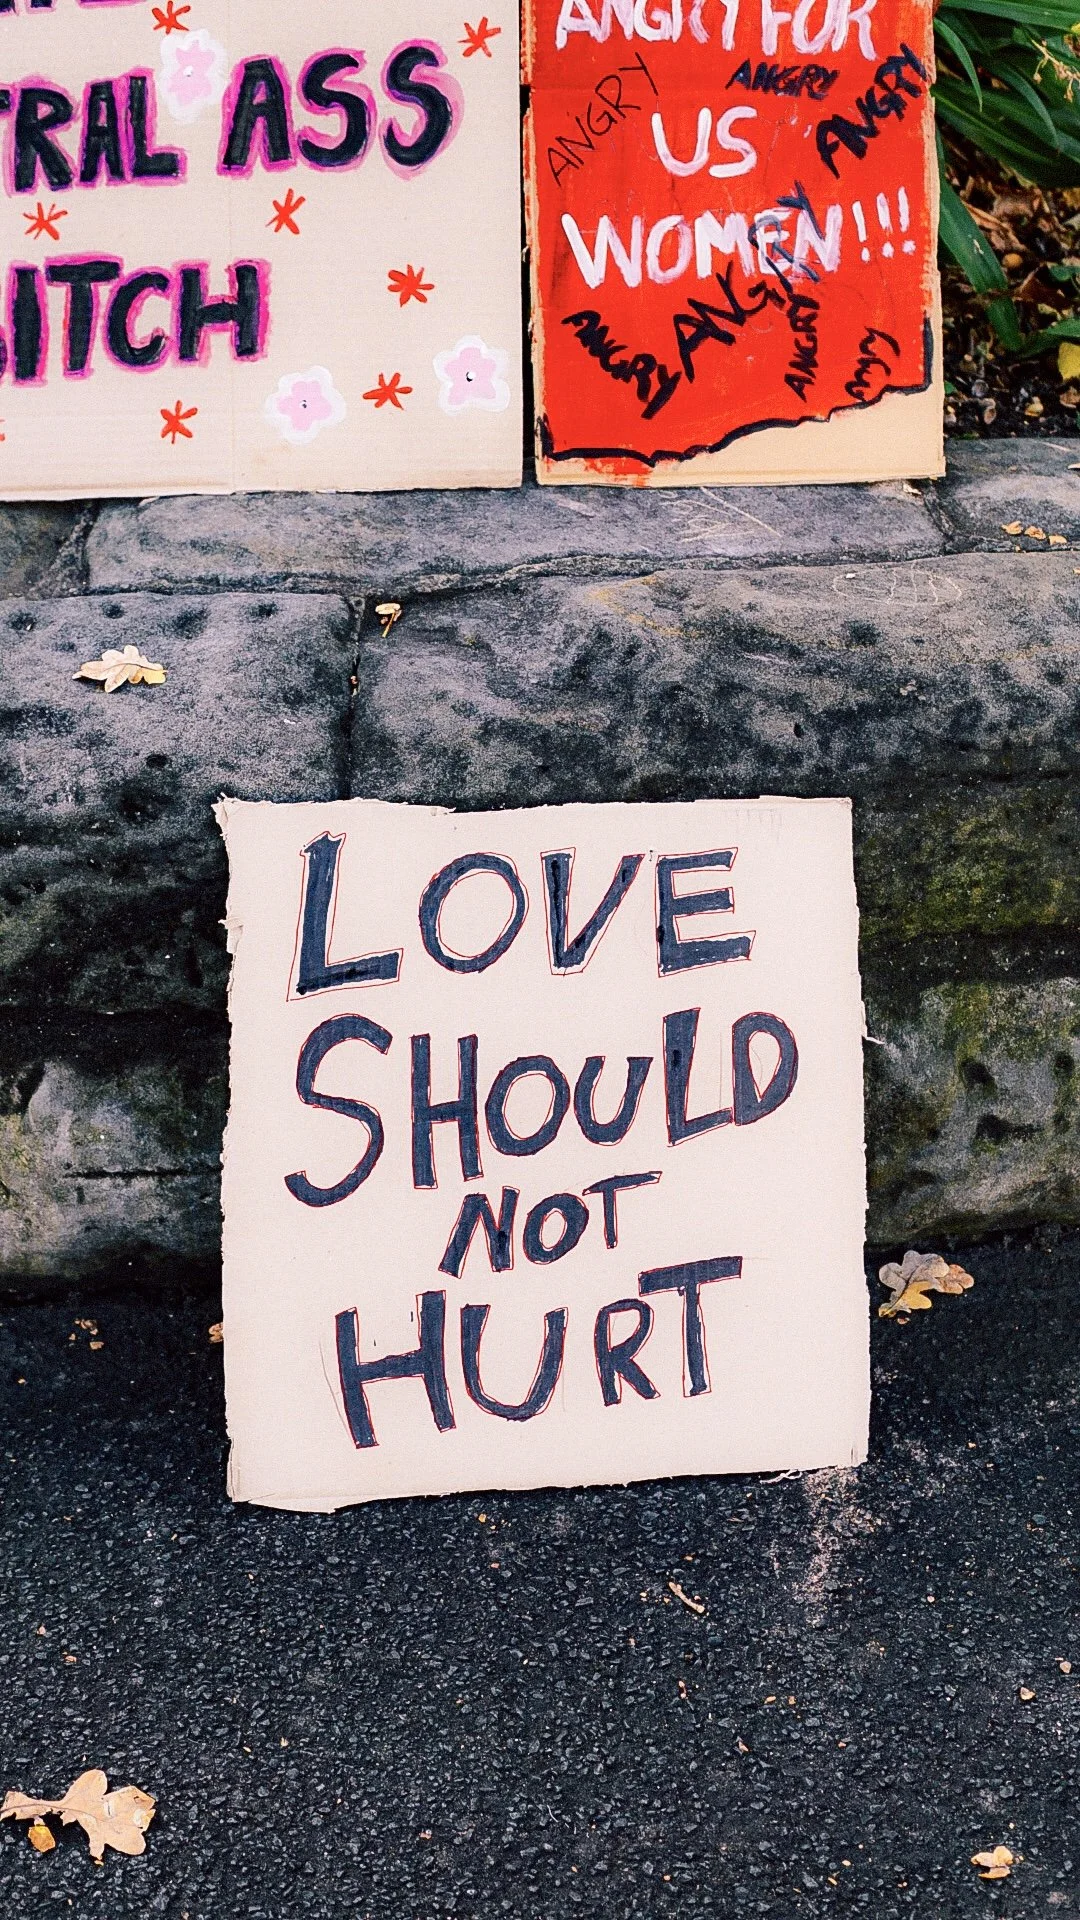 TRAL ASS
BITCH
ANGRY FOR
US
WOMEN!!!
ANGRY
ANGRY
ANGRY
ANGRY
ANGRY
ANGRY
ANGRY
angry
LOVE
SHOULD
NOT
HURT